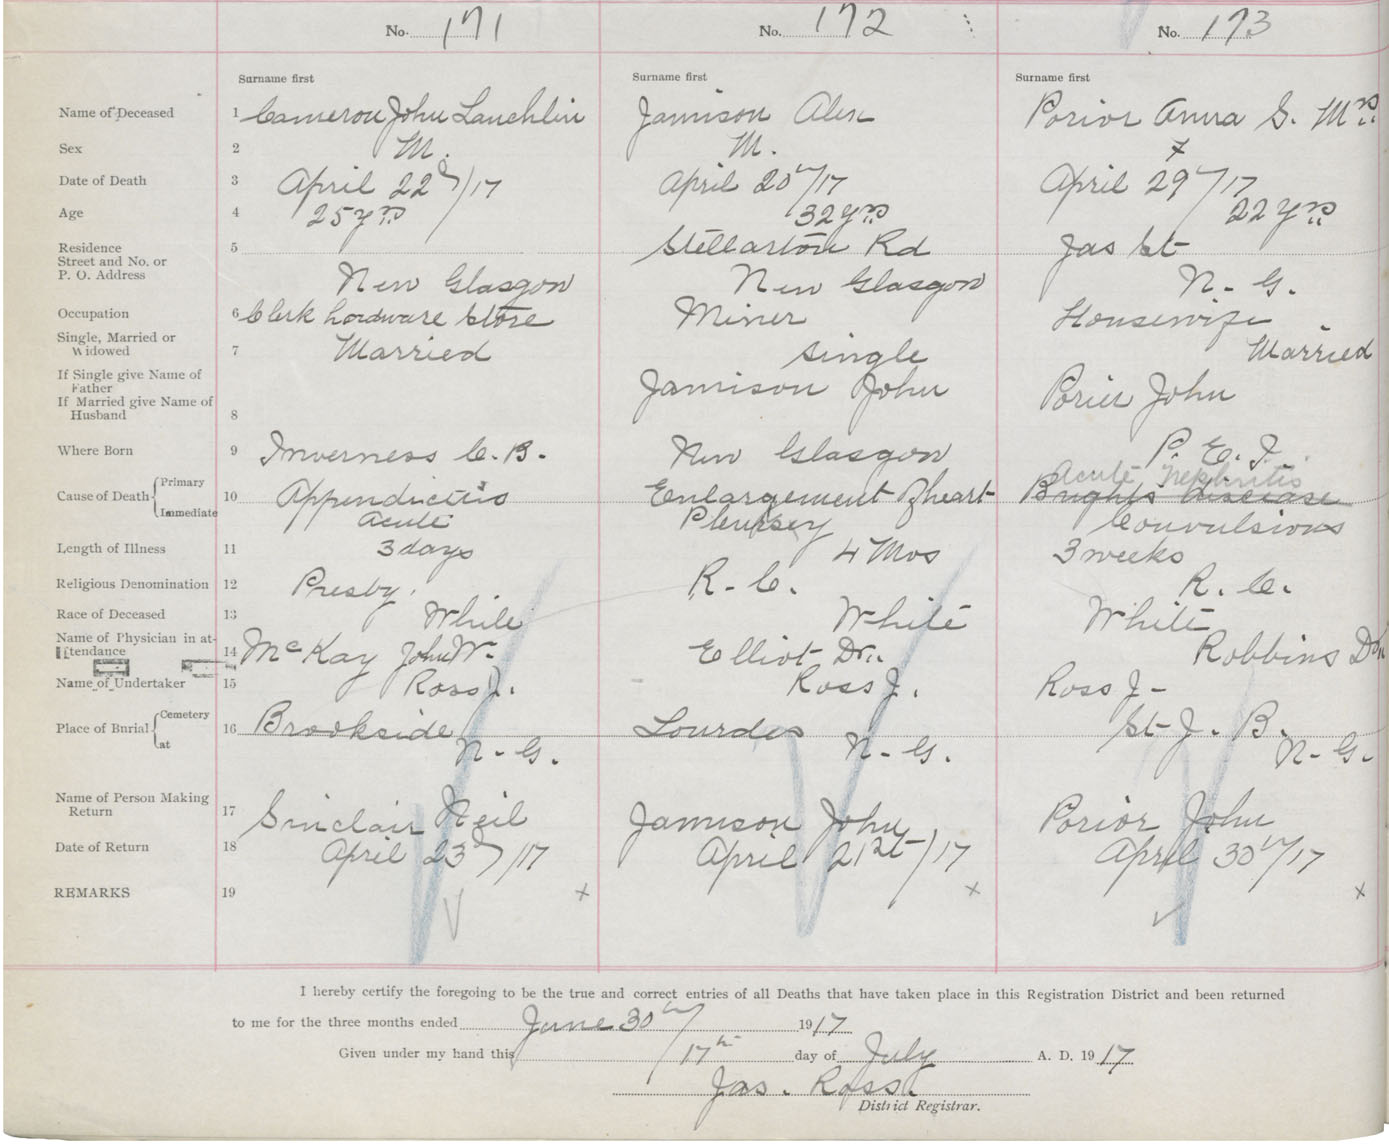 No. 171 No. 172 No. 173
Surname first Surname first Surname first
Name of Deceased 1 Cameron John Lauchlin Jamison Alex Porior Anna G. Mrs
Sex 2 M. M. F
Date of Death 3 April 22d/17 April 20th/17 April 29th/17
Age 4 25 yrs 32 yrs 22 yrs
Residence 5 Stellarton Rd Jas St
Street and No. or
P. O. Address New Glasgow New Glasgow N-G.
Occupation 6 Clerk hardware store Miner Housewife
Single, Married or
Widowed 7 Married single Married
If Single give Name of
Father Jamison John Porier John
If Married give Name of
Husband 8
Where Born 9 Inverness C.B. New Glasgow P.E.I.
Acute Nephritis
Cause of Death Primary 10 Appendicitis Enlargement of heart Brights disease
Immediate acute Pleursey Convulsions
Length of Illness 11 3 days 4 Mos 3 weeks
Religious Denomination 12 Presby. R-C. R.C.
Race of Deceased 13 White White White
Name of Physician in at-
tendance 14 McKay John W. Elliot Dr. Robbins Dr.
Name of Undertaker 15 Ross J. Ross J. Ross J-
Place of Burial Cemetery 16 Brookside Lourdes St-J.B.
at N-G. N-G. N-G.
Name of Person Making
Return 17 Sinclair Neil Jamison John Porior John
Date of Return 18 April 23d/17 April 21st/17 April 30th/17
REMARKS 19 x x x
I hereby certify the foregoing to be the true and correct entries of all Deaths that have taken place in this Registration District and been returned
to me for the three months ended June 30th 1917
Given under my hand this 17th day of July A. D. 1917
Jas. Ross.
District Registrar.